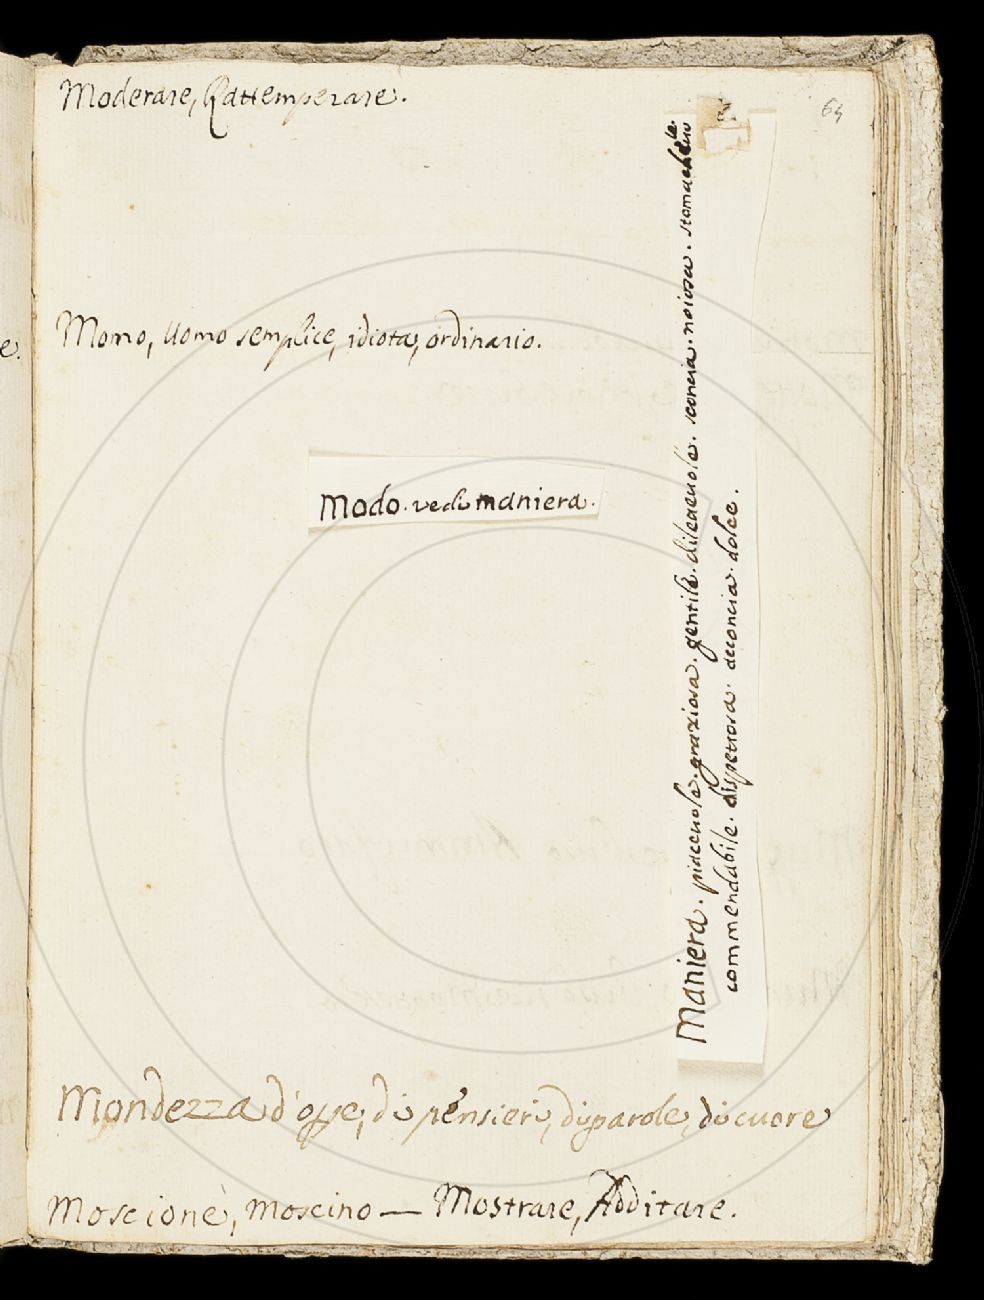 64
Moderare, Rattemperare.
Momo, Uomo semplice, idiota, ordinario.
Modo. vedi maniera.
Maniera. piacevole. graziosa. gentile. dilegevole. sconcia. noiosa. stomachevole.
commendabile. dispettosa. acconcia. dolce.
Mondezza d'opre, di pensieri, di parole, di cuore
Moscione, moscino — Mostrare, Additare.